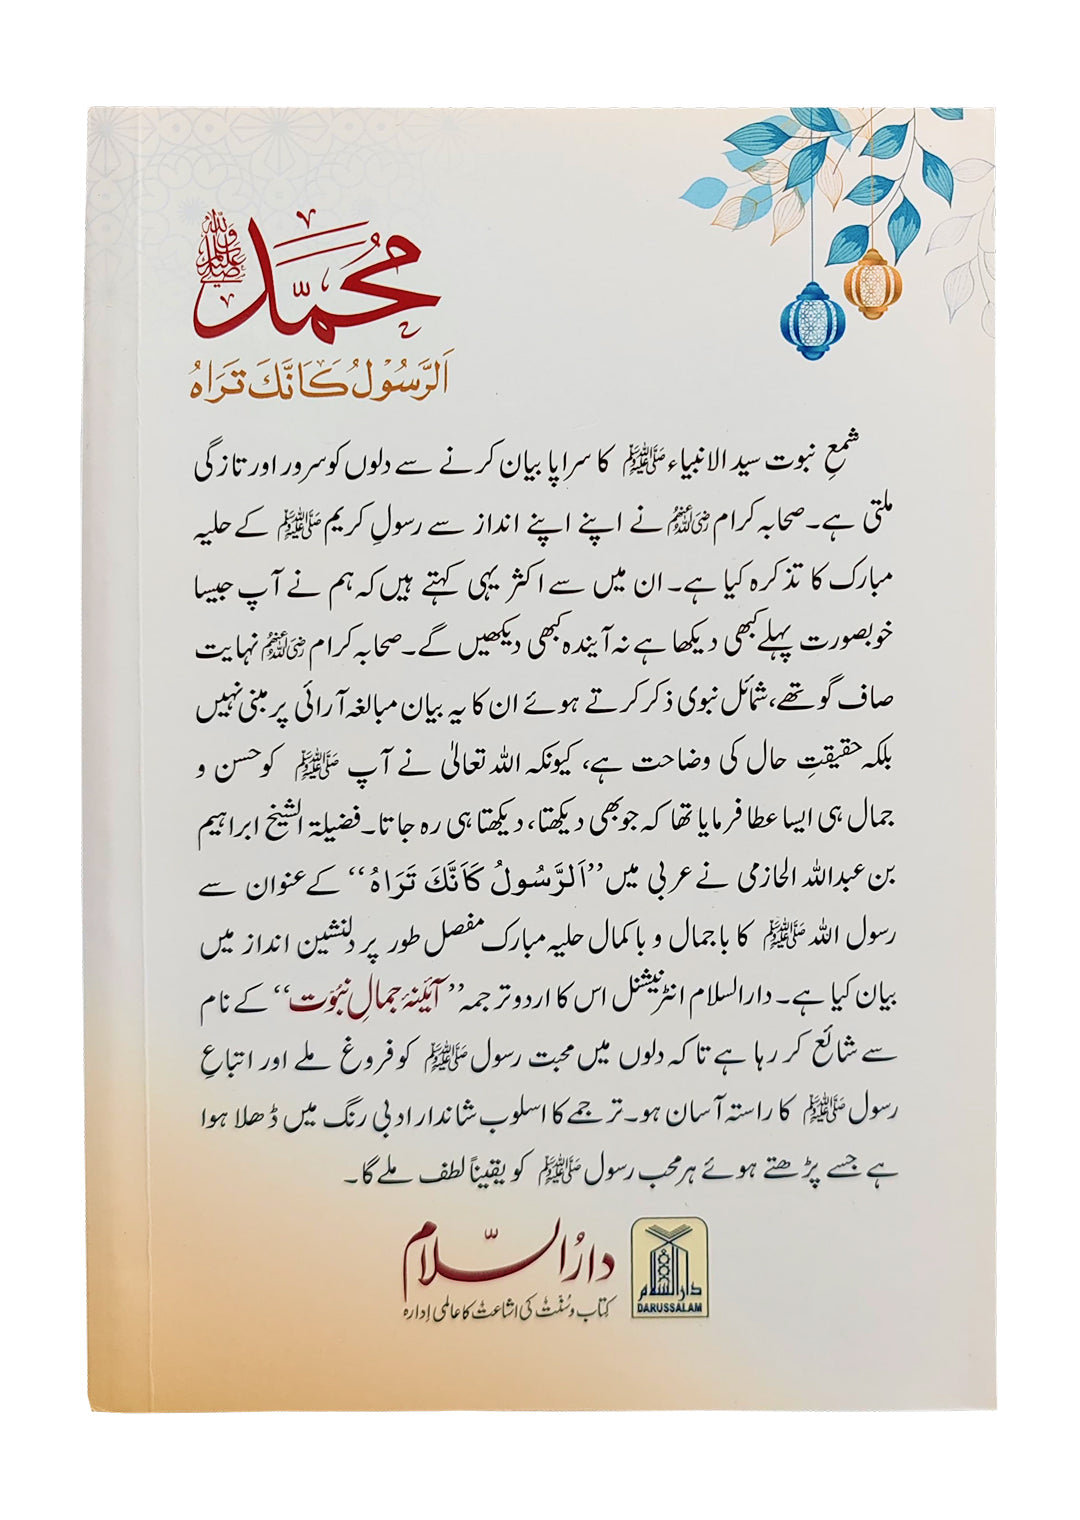 محمد ﷺ
اَلرَّسُوْلُ كَاَنَّكَ تَرَاهُ
شمعِ نبوت سید الانبیاء ﷺ کا سراپا بیان کرنے سے دلوں کو سرور اور تازگی
ملتی ہے۔ صحابہ کرام رضی اللہ عنہم نے اپنے اپنے انداز سے رسولِ کریم ﷺ کے حلیہ
مبارک کا تذکرہ کیا ہے۔ ان میں سے اکثر یہی کہتے ہیں کہ ہم نے آپ جیسا
خوبصورت پہلے کبھی دیکھا ہے نہ آیندہ کبھی دیکھیں گے۔ صحابہ کرام رضی اللہ عنہم نہایت
صاف گو تھے، شمائل نبوی ذکر کرتے ہوئے ان کا یہ بیان مبالغہ آرائی پر مبنی نہیں
بلکہ حقیقتِ حال کی وضاحت ہے، کیونکہ اللہ تعالیٰ نے آپ ﷺ کو حسن و
جمال ہی ایسا عطا فرمایا تھا کہ جو بھی دیکھتا، دیکھتا ہی رہ جاتا۔ فضیلۃ الشیخ ابراہیم
بن عبداللہ الحازمی نے عربی میں ’’اَلرَّسُولُ كَاَنَّكَ تَرَاهُ‘‘ کے عنوان سے
رسول اللہ ﷺ کا باجمال و باکمال حلیہ مبارک مفصل طور پر دلنشین انداز میں
بیان کیا ہے۔ دارالسلام انٹرنیشنل اس کا اردو ترجمہ ’’آئینۂ جمالِ نبوّت‘‘ کے نام
سے شائع کر رہا ہے تاکہ دلوں میں محبت رسول ﷺ کو فروغ ملے اور اتباعِ
رسول ﷺ کا راستہ آسان ہو۔ ترجمے کا اسلوب شاندار ادبی رنگ میں ڈھلا ہوا
ہے جسے پڑھتے ہوئے ہر محب رسول ﷺ کو یقیناً لطف ملے گا۔
دارُالسّلام
کتاب و سنّت کی اشاعت کا عالمی ادارہ
دارالسلام
DARUSSALAM